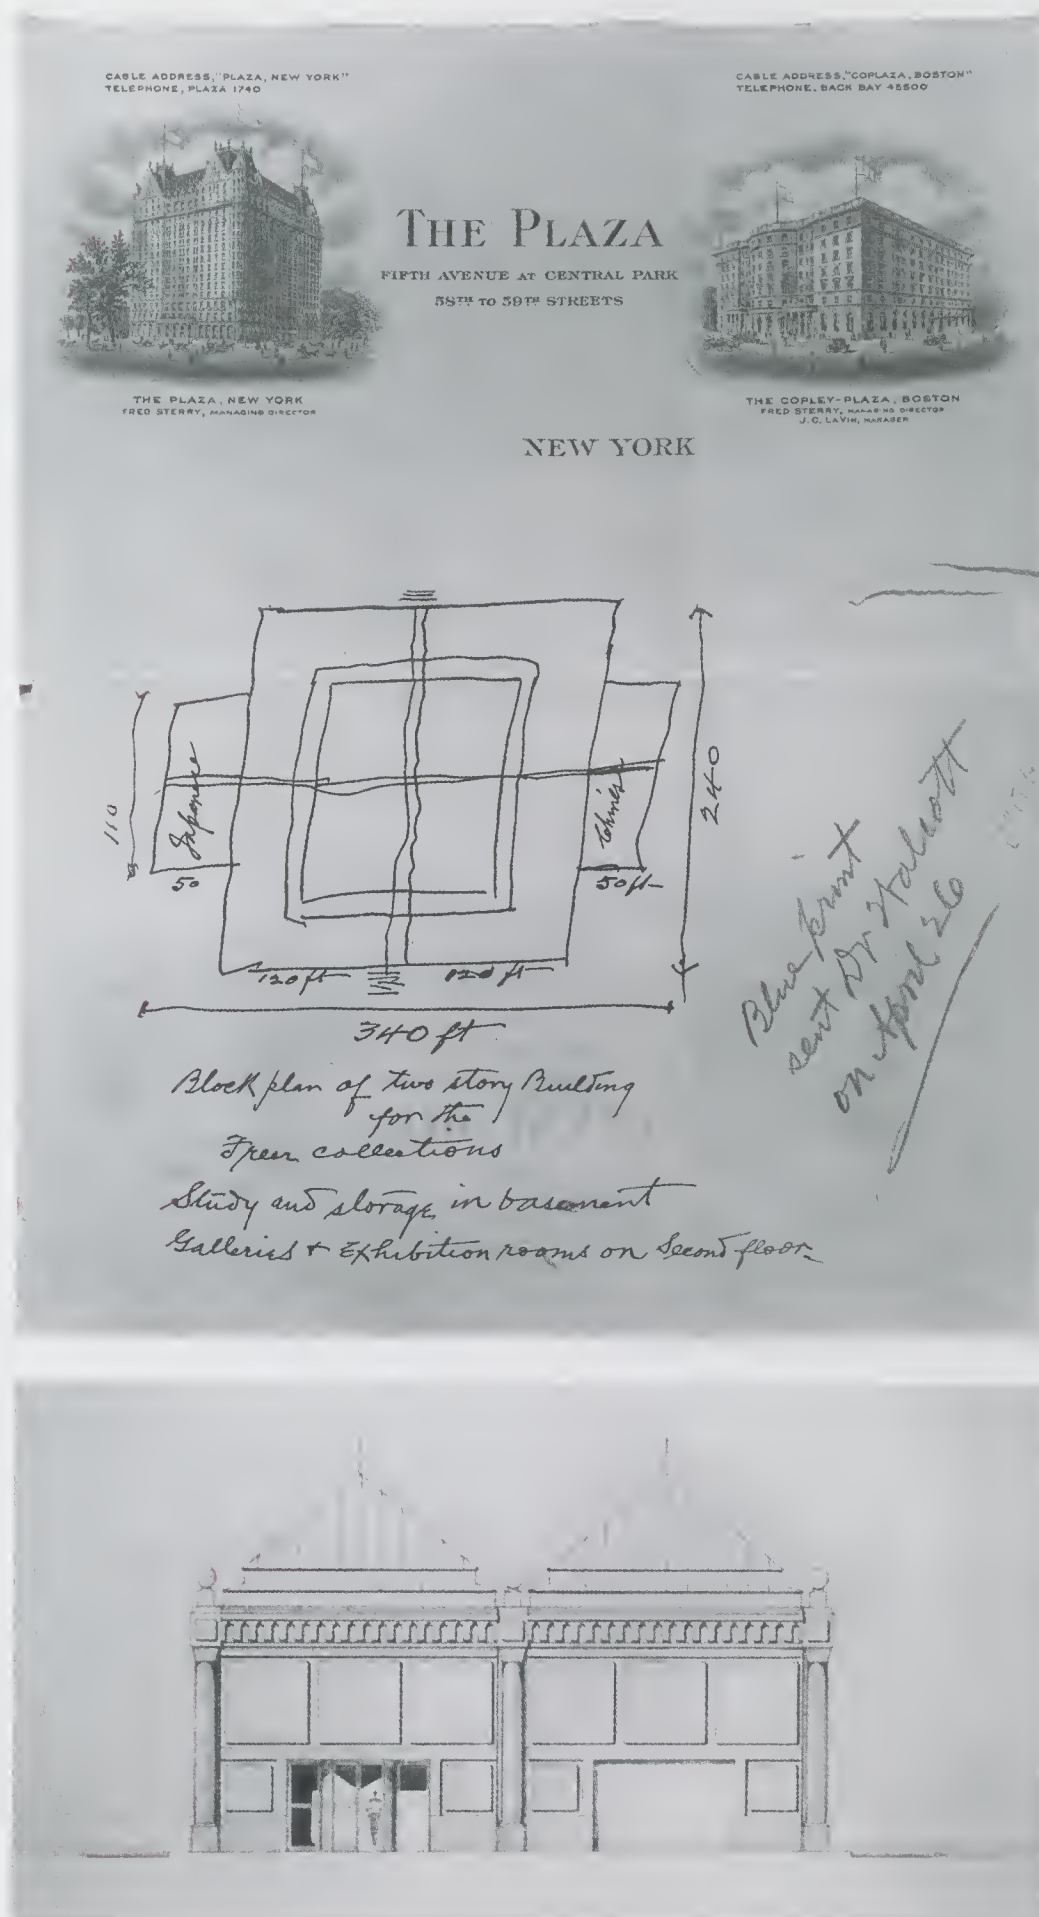 CABLE ADDRESS, "PLAZA, NEW YORK"
TELEPHONE, PLAZA 1740
CABLE ADDRESS, "COPLAZA, BOSTON"
TELEPHONE, BACK BAY 45500
THE PLAZA
FIFTH AVENUE AT CENTRAL PARK
58TH TO 59TH STREETS
THE PLAZA, NEW YORK
FRED STERRY, MANAGING DIRECTOR
THE COPLEY-PLAZA, BOSTON
FRED STERRY, MANAGING DIRECTOR
J. C. LAVIN, MANAGER
NEW YORK
110
Japanese
50
Chinese
50 ft
240
120 ft
120 ft
340 ft
Blue print
sent Dr Walcott
on April 26
Block plan of two story Building
for the
Freer collections
Study and storage in basement
Galleries + Exhibition rooms on Second floor